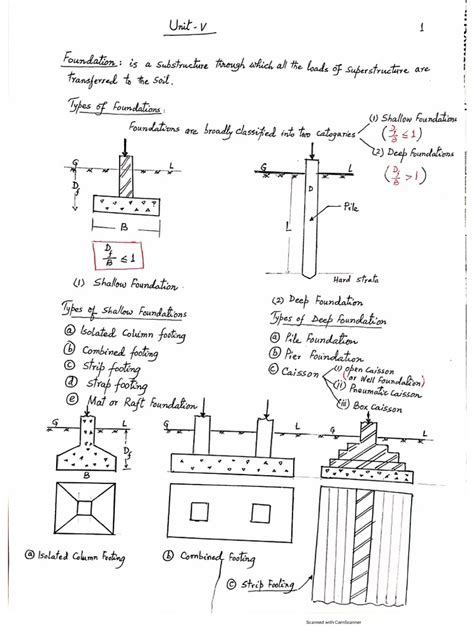 Unit-V
1
Foundation: is a substructure through which all the loads of superstructure are
transferred to the soil.
Types of Foundations:
Foundations are broadly classified into two categories
(1) Shallow Foundation
(Df/B ≤ 1)
(2) Deep Foundations
(Df/B > 1)
G L
Df
B
Df/B ≤ 1
(1) Shallow Foundation
G L
D
l
Pile
Hard strata
(2) Deep Foundation
Types of Shallow Foundations
(a) Isolated Column footing
(b) Combined footing
(c) Strip footing
(d) Strap footing
(e) Mat or Raft Foundation
Types of Deep Foundation
(a) Pile Foundation
(b) Pier Foundation
(c) Caisson
(i) Open Caisson
(or Well Foundation)
(ii) Pneumatic Caisson
(iii) Box Caisson
G L
Df
B
G L
(a) Isolated Column Footing
(b) Combined Footing
(c) Strip Footing
Scanned with CamScanner